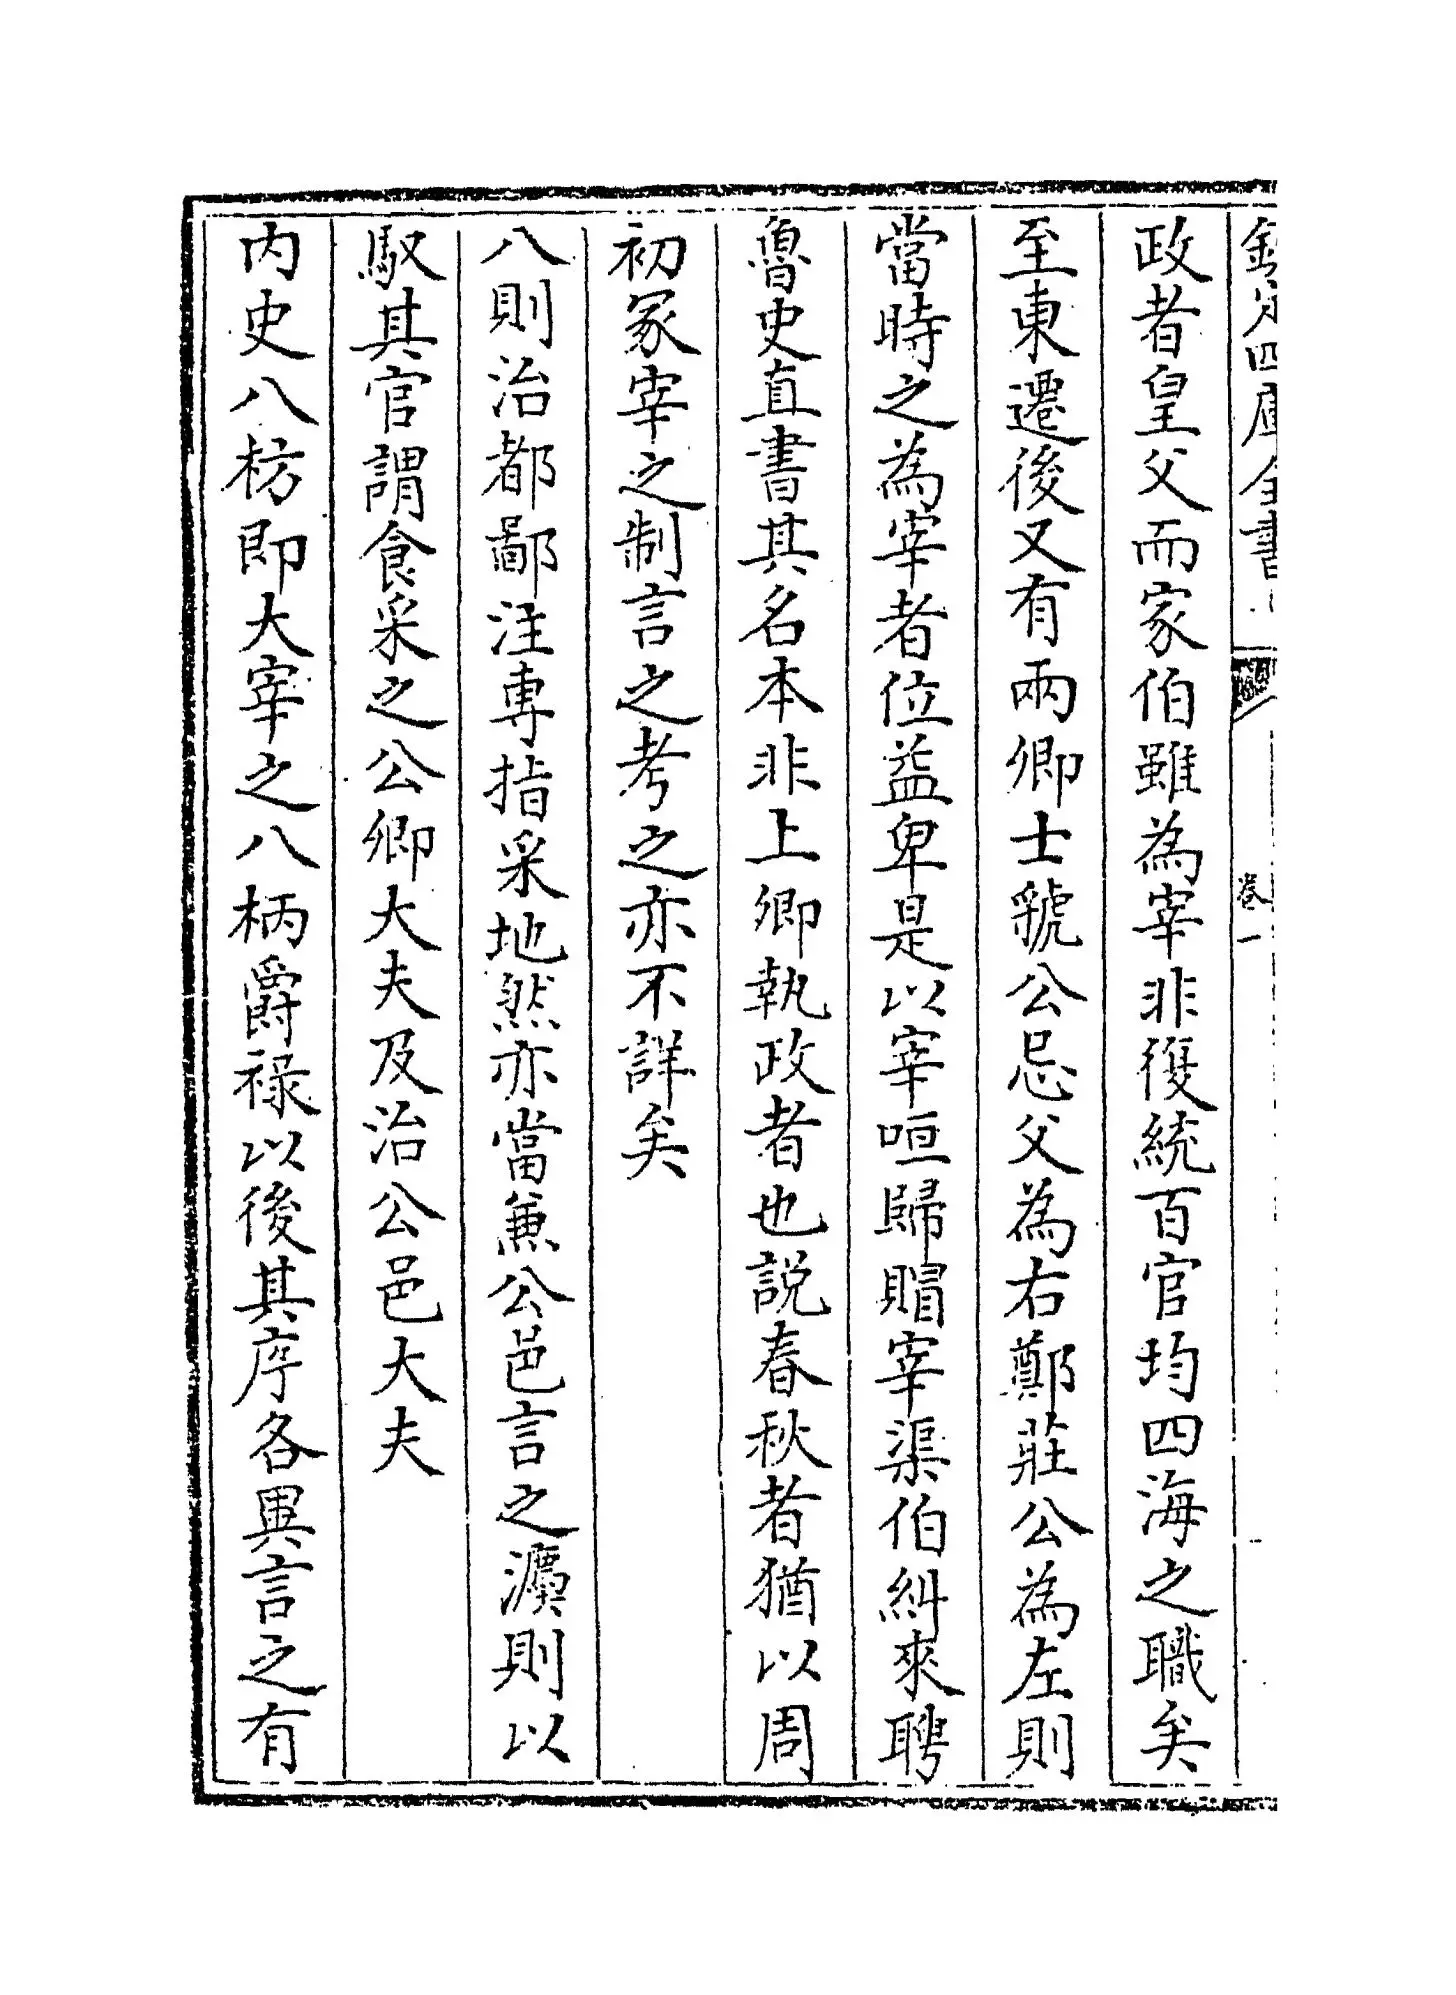 欽定四庫全書
卷一
政者皇父而家伯雖為宰非復統百官均四海之職矣
至東遷後又有兩卿士虢公忌父為右鄭莊公為左則
當時之為宰者位益卑是以宰咺歸賵宰渠伯糾來聘
魯史直書其名本非上卿執政者也說春秋者猶以周
初冢宰之制言之考之亦不詳矣
八則治都鄙注專指采地然亦當兼公邑言之灋則以
馭其官謂食采之公卿大夫及治公邑大夫
内史八枋即大宰之八柄爵祿以後其序各異言之有